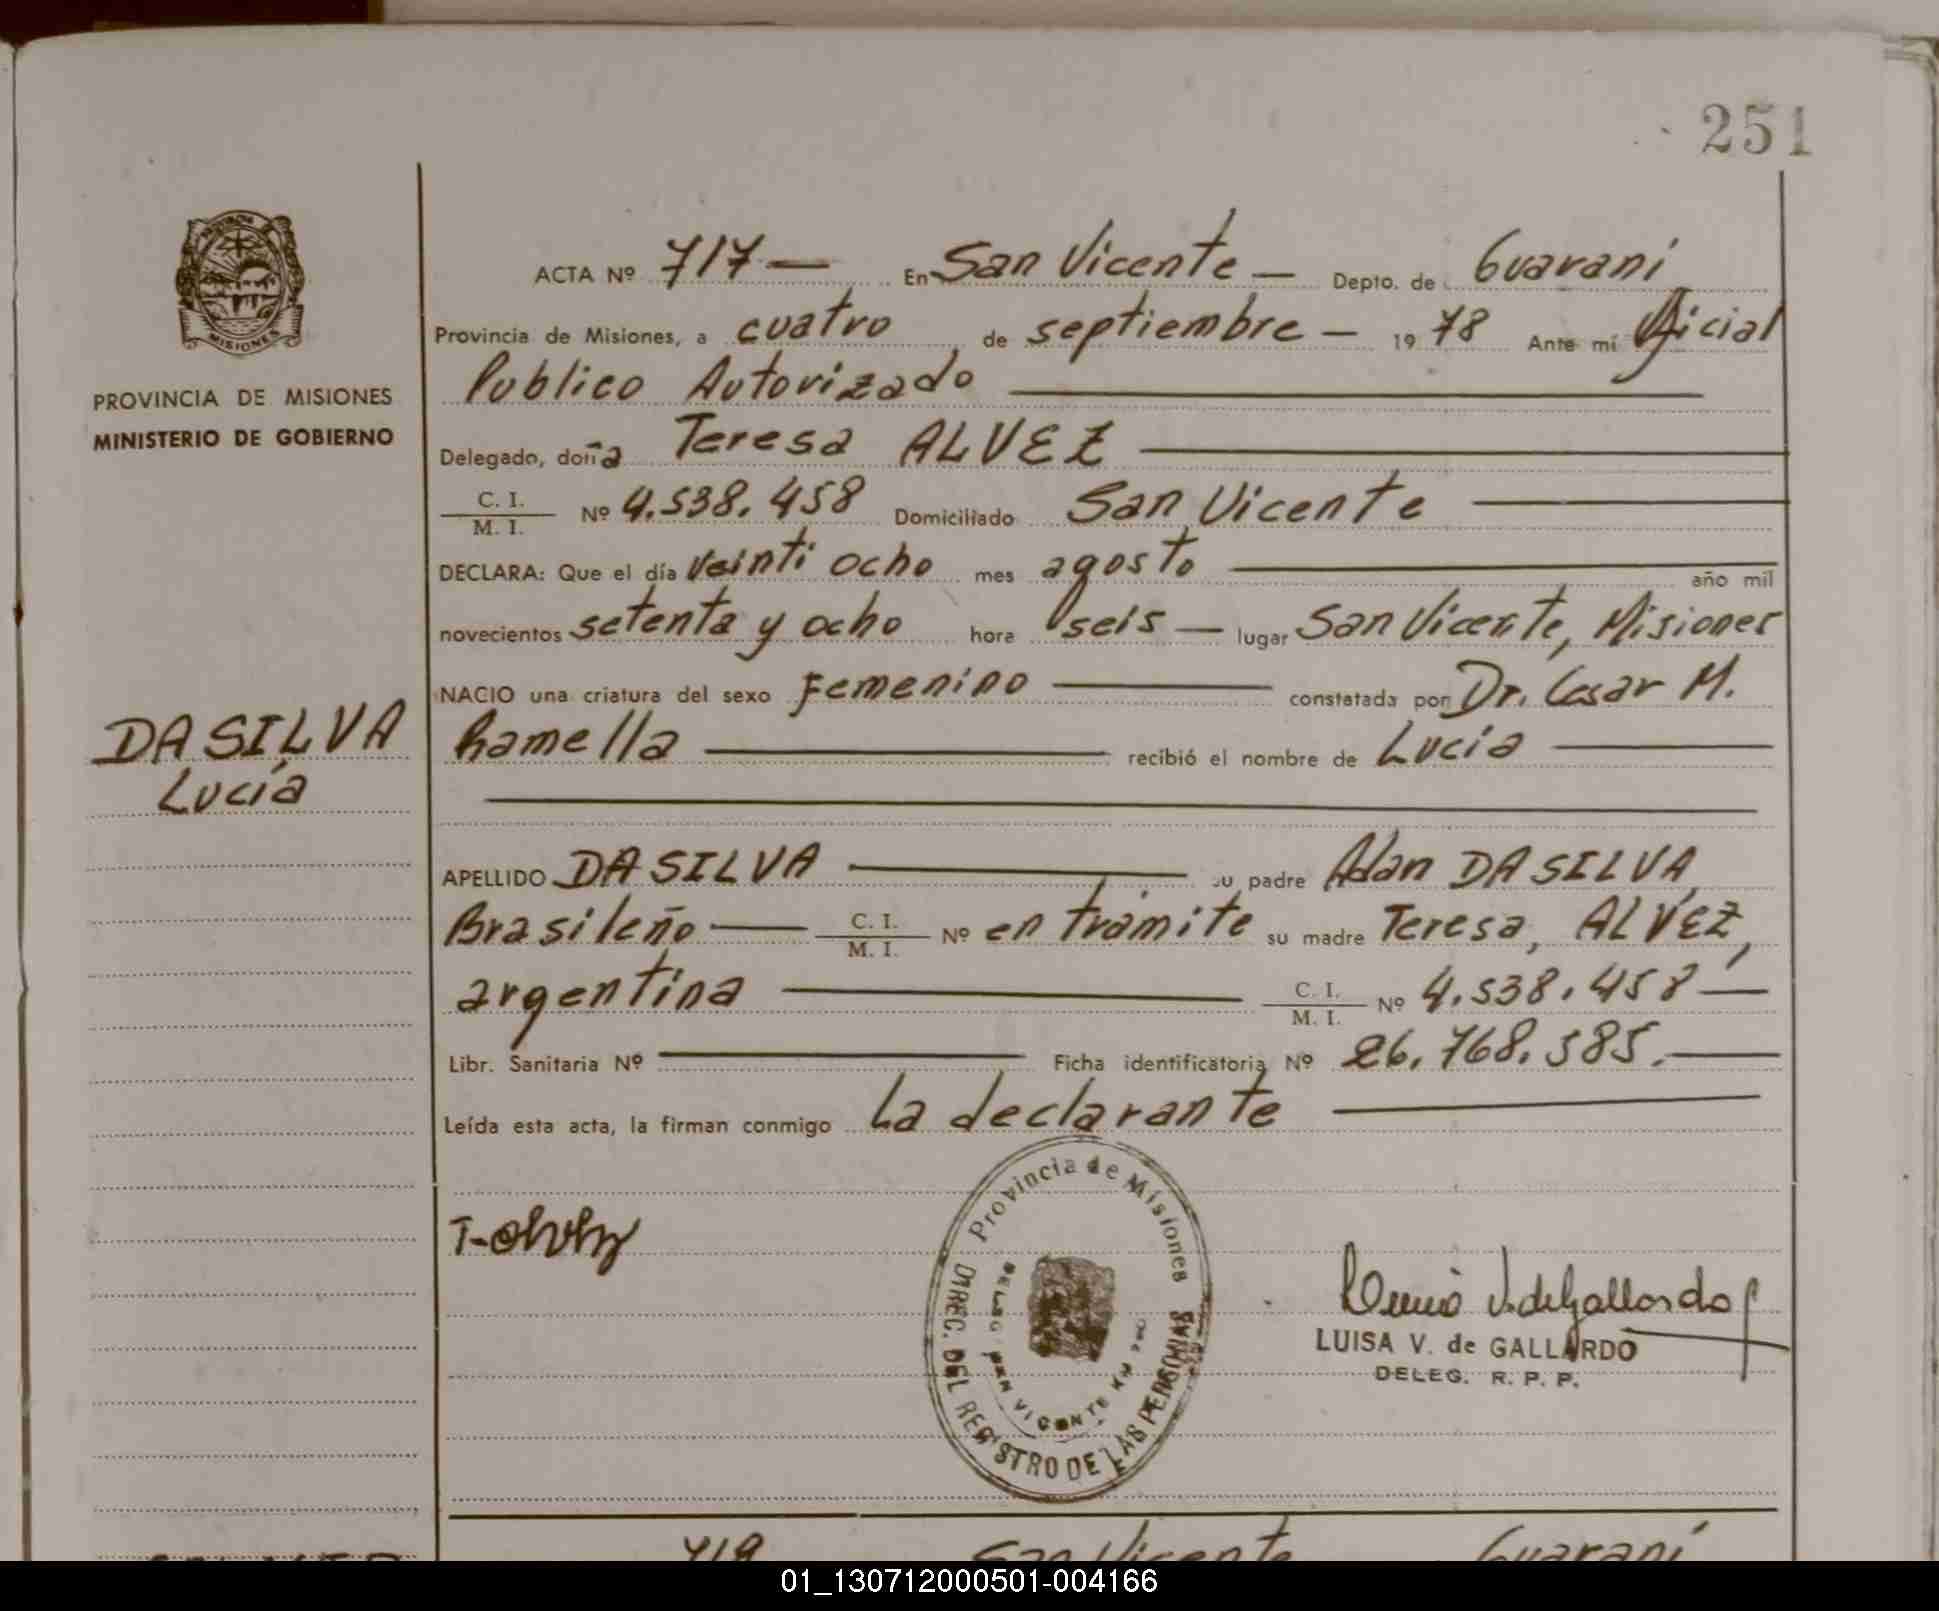 251
PROVINCIA DE MISIONES
MINISTERIO DE GOBIERNO
MISIONES
DA SILVA
Lucía
ACTA Nº 717 — En San Vicente — Depto. de Guaraní
Provincia de Misiones, a cuatro de septiembre — 1978 Ante mí Oficial
Publico Autorizado
Delegado, doña Teresa ALVEZ
C. I. / M. I. Nº 4.538.458 Domiciliado San Vicente
DECLARA: Que el día veinti ocho mes agosto año mil
novecientos setenta y ocho hora seis — lugar San Vicente, Misiones
NACIO una criatura del sexo Femenino constatada por Dr. Cesar M.
Ramella recibió el nombre de Lucía
APELLIDO DA SILVA su padre Adan DA SILVA,
Brasileño — C. I. / M. I. Nº en trámite su madre Teresa, ALVEZ,
argentina C. I. / M. I. Nº 4.538.458 —
Libr. Sanitaria Nº Ficha identificatoria Nº 26.768.585. —
Leída esta acta, la firman conmigo La declarante
Provincia de Misiones
DIREC. DEL REGISTRO DE LAS PERSONAS
DELEG SAN VICENTE KM
LUISA V. de GALLARDO
DELEG. R. P. P.
718 San Vicente Guaraní
01_130712000501-004166